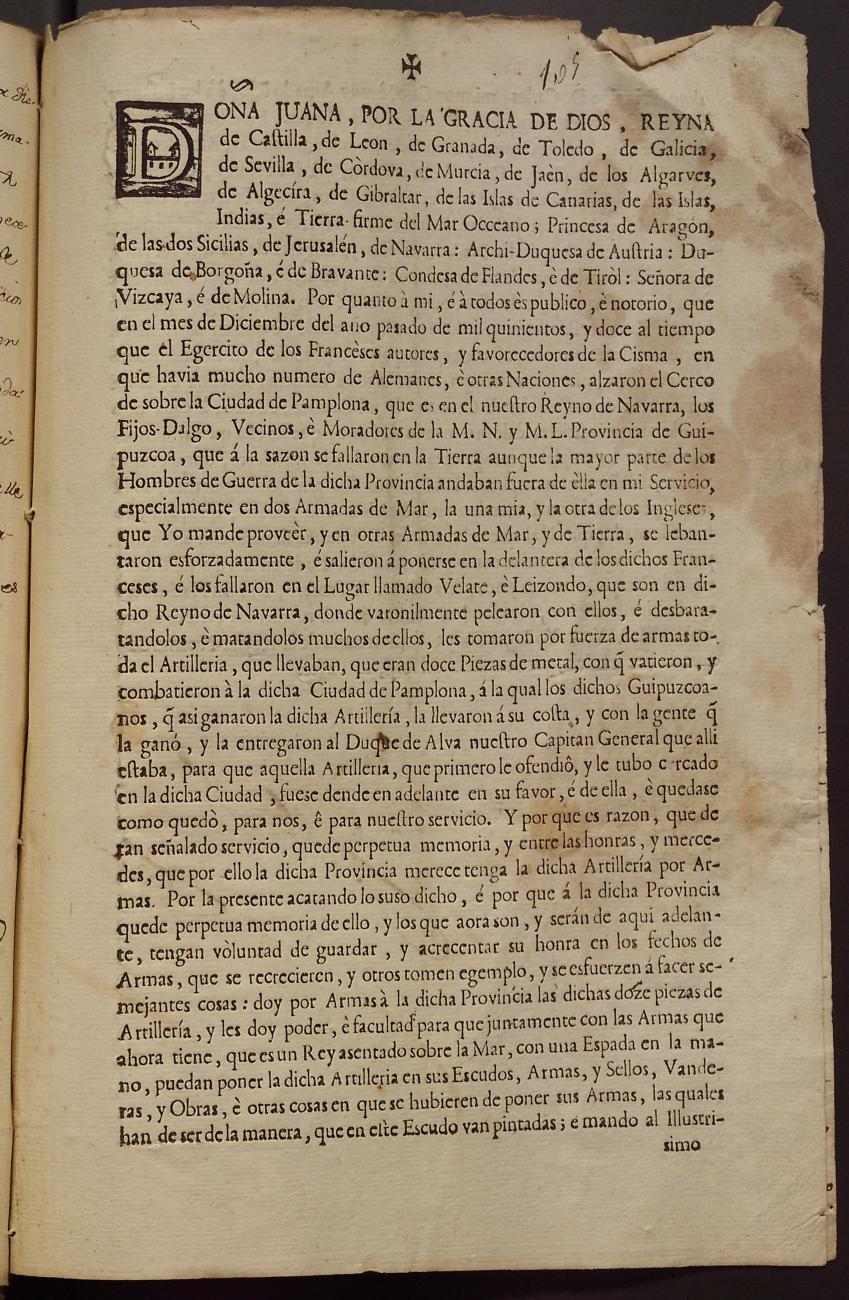 ✠
105
DONA JUANA, POR LA GRACIA DE DIOS, REYNA
de Castilla, de Leon, de Granada, de Toledo, de Galicia,
de Sevilla, de Còrdova, de Murcia, de Jaèn, de los Algarves,
de Algecíra, de Gibraltar, de las Islas de Canarias, de las Islas,
Indias, é Tierra-firme del Mar Occeano; Princesa de Aragón,
de las dos Sicilias, de Jerusalén, de Navarra: Archi-Duquesa de Austria: Du-
quesa de Borgoña, é de Bravante: Condesa de Flandes, è de Tiròl: Señora de
Vizcaya, é de Molina. Por quanto à mi, é à todos ès publico, è notorio, que
en el mes de Diciembre del año pasado de mil quinientos, y doce al tiempo
que el Egercito de los Francèses autores, y favorecedores de la Cisma, en
que havia mucho numero de Alemanes, è otras Naciones, alzaron el Cerco
de sobre la Ciudad de Pamplona, que es en el nuestro Reyno de Navarra, los
Fijos-Dalgo, Vecinos, è Moradores de la M. N. y M. L. Provincia de Gui-
puzcoa, que á la sazon se fallaron en la Tierra aunque la mayor parte de los
Hombres de Guerra de la dicha Provincia andaban fuera de èlla en mi Servicio,
especialmente en dos Armadas de Mar, la una mia, y la otra de los Ingleses,
que Yo mande proveèr, y en otras Armadas de Mar, y de Tierra, se leban-
taron esforzadamente, é salieron á ponerse en la delantera de los dichos Fran-
ceses, é los fallaron en el Lugar llamado Velate, è Leizondo, que son en di-
cho Reyno de Navarra, donde varonilmente pelearon con ellos, é desbara-
tandolos, è matandolos muchos de ellos, les tomaron por fuerza de armas to-
da el Artilleria, que llevaban, que eran doce Piezas de metal, con q̃ vatieron, y
combatieron à la dicha Ciudad de Pamplona, á la qual los dichos Guipuzcoa-
nos, q̃ asi ganaron la dicha Artillería, la llevaron á su costa, y con la gente q̃
la ganó, y la entregaron al Duque de Alva nuestro Capitan General que alli
estaba, para que aquella Artilleria, que primero le ofendiô, y le tubo cercado
en la dicha Ciudad, fuese dende en adelante en su favor, é de ella, è quedase
como quedò, para nos, ê para nuestro servicio. Y por que es razon, que de
tan señalado servicio, quede perpetua memoria, y entre las honras, y merce-
des, que por ello la dicha Provincia merece tenga la dicha Artillería por Ar-
mas. Por la presente acatando lo suso dicho, é por que á la dicha Provincia
quede perpetua memoria de ello, y los que aora son, y serán de aqui adelan-
te, tengan vòluntad de guardar, y acrecentar su honra en los fechos de
Armas, que se recrecieren, y otros tomen egemplo, y se esfuerzen á facer se-
mejantes cosas: doy por Armas à la dicha Provincia las dichas doze piezas de
Artillería, y les doy poder, è facultad para que juntamente con las Armas que
ahora tiene, que es un Rey asentado sobre la Mar, con una Espada en la ma-
no, puedan poner la dicha Artilleria en sus Escudos, Armas, y Sellos, Vande-
ras, y Obras, è otras cosas en que se hubieren de poner sus Armas, las quales
han de ser de la manera, que en este Escudo van pintadas; é mando al Illustri-
simo